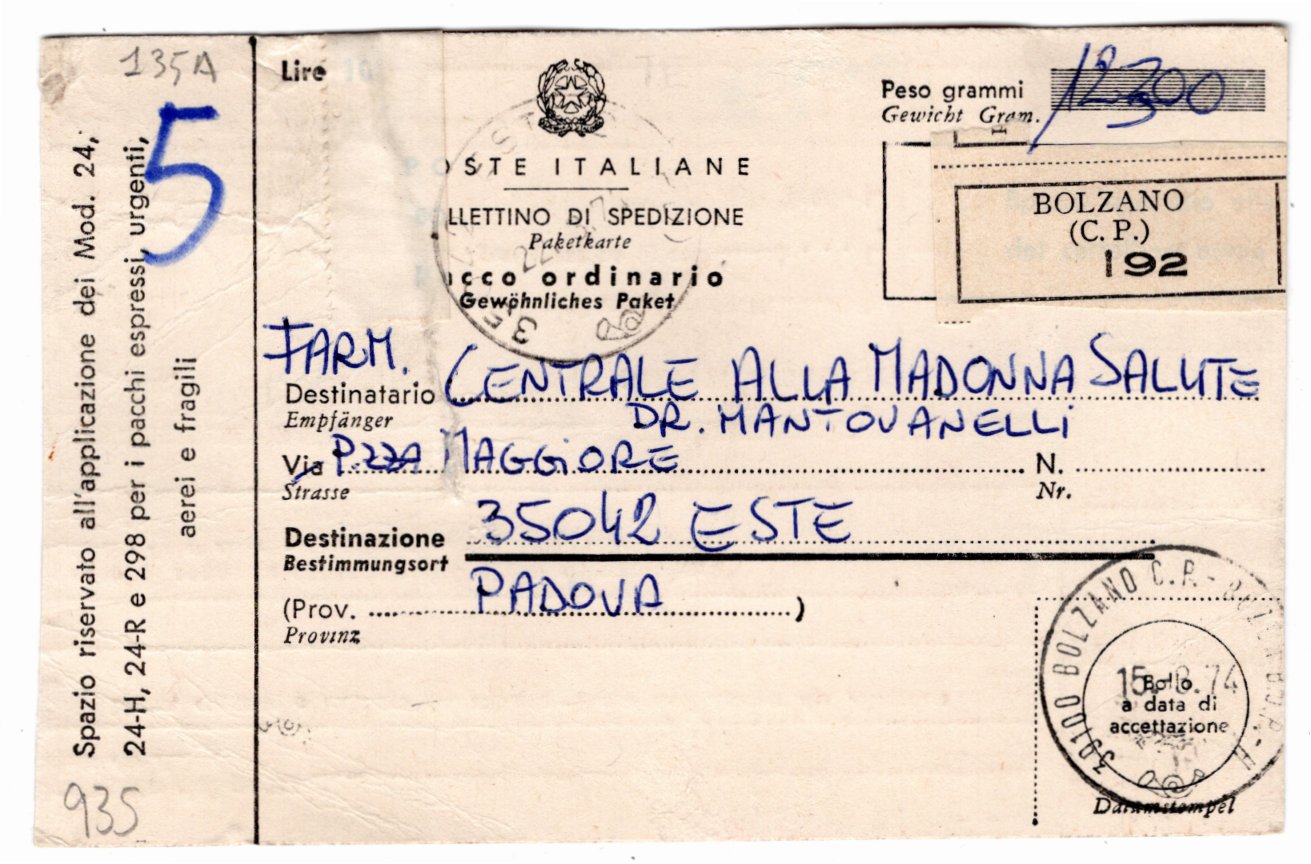 135A
5
Spazio riservato all'applicazione dei Mod. 24,
24-H, 24-R e 298 per i pacchi espressi, urgenti,
aerei e fragili
935
Lire
POSTE ITALIANE
LLETTINO DI SPEDIZIONE
Paketkarte
acco ordinario
Gewöhnliches Paket
Peso grammi
Gewicht Gram.
12300
BOLZANO
(C. P.)
192
FARM. CENTRALE ALLA MADONNA SALUTE
Destinatario
Empfänger
DR. MANTOVANELLI
Via P.ZZA MAGGIORE N.
Strasse Nr.
Destinazione 35042 ESTE
Bestimmungsort
(Prov. PADOVA )
Provinz
39100 BOLZANO C.P. - BOZEN
15. .74
Bollo
a data di
accettazione
Datumstempel